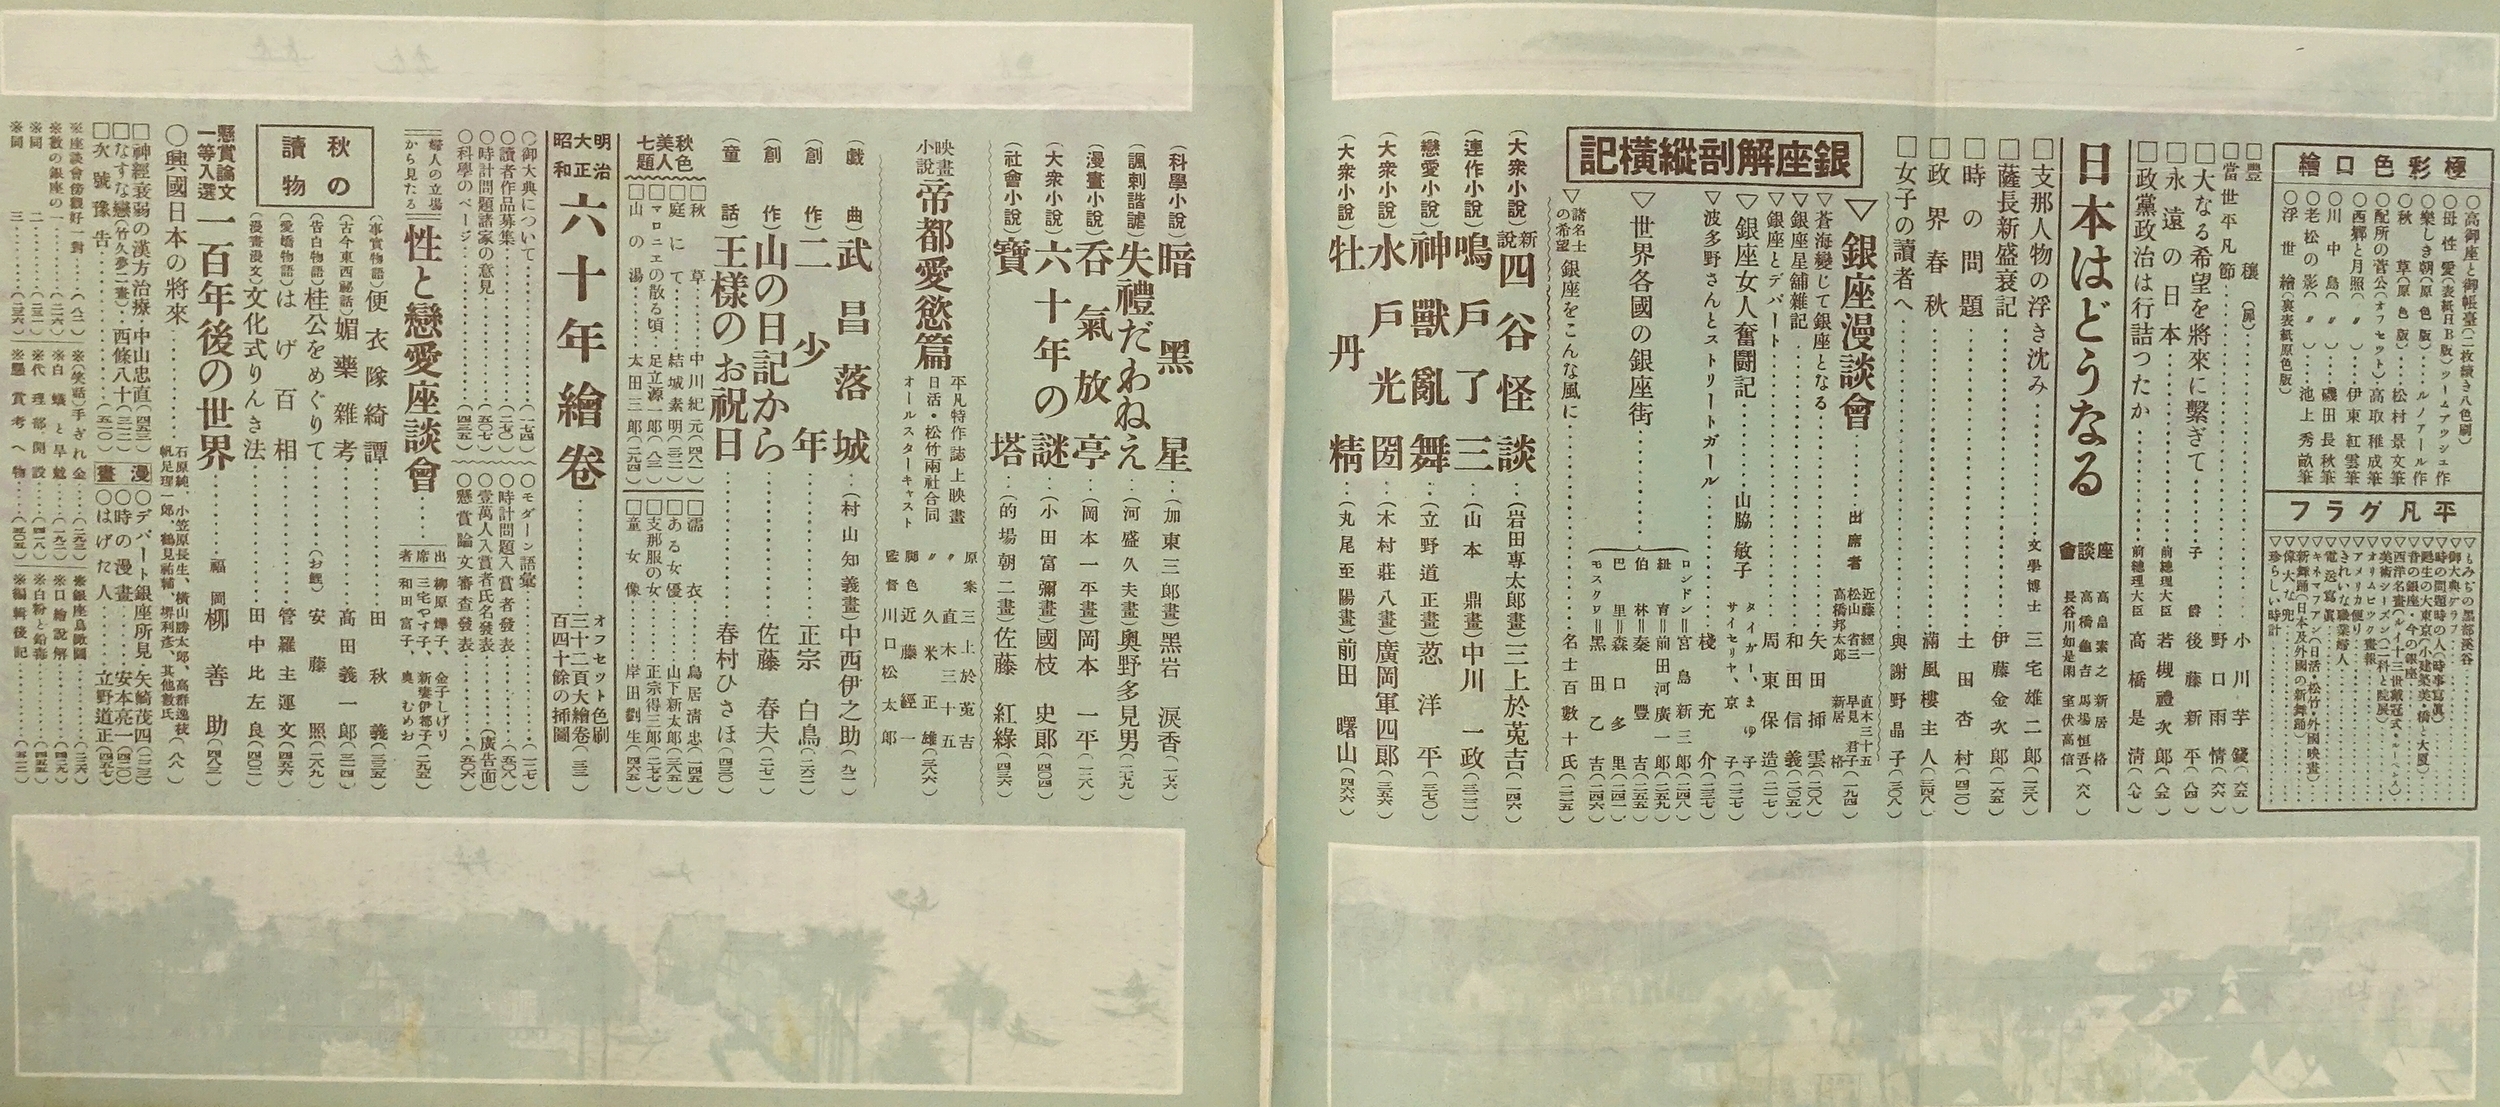 極彩色口繪
○高御座と御帳臺(二枚續き八色刷)
○母性愛(表紙HB版)ツームアウシュ作
○樂しき朝(原色版)‥ルノアール作
○秋草(原色版)‥松村景文筆
○配所の菅公(オフセット)高取稚成筆
○西鄕と月照(〃)‥伊東紅雲筆
○川中島(〃)‥磯田長秋筆
○老松の影(〃)‥池上秀畝筆
○浮世繪(裏表紙原色版)
平凡グラフ
▽もみぢの黑部溪谷
▽御大典グラフ
▽時の問題時の人(時事寫眞)
▽甦生の大東京(小建築美・橋と大厦)
▽昔の銀座・今の銀座
▽西洋名畫(ルイ十三世戴冠式・ルーベンス)
▽美術シーズン(二科と院展)
▽オリムピック畫報
▽アメリカ便り
▽きれいな職業婦人
▽電送寫眞
▽キネマファン(日活・松竹・外國映畫)
▽新舞踊(日本及外國の新舞踊)
▽偉大な兜
▽珍らしい時計
□豐穰(扉)‥小川芋錢(六五)
□當世平凡節‥野口雨情(六六)
□大なる希望を將來に繫ぎて‥子爵 後藤新平(八四)
□永遠の日本‥前總理大臣 若槻禮次郎(八五)
□政黨政治は行詰つたか‥前總理大臣 高橋是淸(八七)
日本はどうなる 座談會 高畠素之 新居格 高橋龜吉 馬場恒吾 長谷川如是閑 室伏高信(六八)
□支那人物の浮き沈み‥文學博士 三宅雄二郎(一三八)
□薩長新盛衰記‥伊藤金次郎(一六五)
□時の問題‥土田杏村(四一〇)
□政界春秋‥滿風樓主人(三四八)
□女子の讀者へ‥與謝野晶子(三〇八)
銀座解剖縱橫記
▽銀座漫談會‥出席者 近藤經一 直木三十五 松山省三 早見君子 高橋邦太郎 新居格(一九四)
▽蒼海變じて銀座となる‥矢田挿雲(二〇八)
▽銀座星舖雜記‥和田信義(二〇五)
▽銀座とデパート‥周東保造(二一七)
▽銀座女人奮鬪記‥山脇敏子 タイガー、まゆ子 サイセリヤ、京子(二三七)
▽波多野さんとストリートガール‥棧充介(二三七)
▽世界各國の銀座街‥
ロンドン=宮島新三郎(二四八)
紐育=前田河廣一郎(二五九)
伯林=秦豐吉(二五五)
巴里=森口多里(二四二)
モスクワ=黑田乙吉(二四六)
▽諸名士の希望 銀座をこんな風に‥名士百數十氏(二三五)
(大衆小說)新說四谷怪談‥(岩田專太郎畫)三上於菟吉(一四六)
(連作小說)鳴戶了三‥(山本鼎畫)中川一政(三二二)
(戀愛小說)神獸亂舞‥(立野道正畫)葱洋平(三七〇)
(大衆小說)水戶光圀‥(木村莊八畫)廣岡軍四郎(三五六)
(大衆小說)牡丹精‥(丸尾至陽畫)前田曙山(四六六)
(科學小說)暗黑星‥(加東三郎畫)黑岩淚香(一七六)
(諷刺諧謔)失禮だわねえ‥(河盛久夫畫)奧野多見男(二七九)
(漫畫小說)吞氣放亭‥(岡本一平畫)岡本一平(一二八)
(大衆小說)六十年の謎‥(小田富彌畫)國枝史郎(四〇四)
(社會小說)寶塔‥(的場朝二畫)佐藤紅綠(四三六)
映畫小說 帝都愛慾篇 平凡特作誌上映畫 日活・松竹兩社合同 オールスターキャスト
原案 三上於菟吉
〃 直木三十五
〃 久米正雄(三八六)
脚色 近藤經一
監督 川口松太郎
(戲曲)武昌落城‥(村山知義畫)中西伊之助(九二)
(創作)二少年‥正宗白鳥(二六二)
(創作)山の日記から‥佐藤春夫(二七二)
(童話)王樣のお祝日‥春村ひさほ(四三〇)
秋色美人七題
□秋草‥中川紀元(四八一)
□庭にて‥結城素明(三二一)
□マロニエの散る頃‥足立源一郎(八三)
□山の湯‥太田三郎(二九四)
□濡衣‥鳥居淸忠(一四五)
□ある女優‥山下新太郎(三六五)
□支那服の女‥正宗得三郎(二七七)
□童女像‥岸田劉生(四六五)
明治大正昭和 六十年繪卷‥オフセット色刷 三十二頁大繪卷 百四十餘の挿圖(三三)
○御大典について‥(一七四)
○讀者作品募集‥(二七〇)
○時計問題諸家の意見‥(五〇七)
○科學のページ‥(四三五)
○モダーン語彙‥(一二七)
○時計問題入賞者發表‥(五〇八)
○壹萬人入賞者氏名發表‥(廣告面)
○懸賞論文審査發表‥(五〇六)
婦人の立場から見たる 性と戀愛座談會‥出席者 柳原燁子、金子しげり 三宅やす子、新妻伊都子 和田富子、奧むめお(二九五)
秋の讀物
(事實物語)便衣隊綺譚‥田秋義(三三五)
(古今東西秘話)媚藥雜考‥高田義一郎(三一四)
(告白物語)桂公をめぐりて‥(お鯉)安藤照(二八九)
(愛嬌物語)はげ百相‥管羅主運文(四五六)
(漫畫漫文)文化式りんき法‥田中比左良(四〇二)
懸賞論文一等入選 一百年後の世界‥福岡 柳善助(四八三)
○興國日本の將來‥石原純、小笠原長生、橫山勝太郎、高群逸枝、帆足理一郎、鶴見祐輔、堺利彥、其他數氏(八八)
□神經衰弱の漢方治療・中山忠直(四五三)
□なすな戀(竹久夢二畫)‥西條八十(三三一)
□次號豫告‥(五一〇)
漫畫
○デパート銀座所見・矢崎茂四(二三三)
○時の漫畫‥安本亮一(四三〇)
○はげた人‥立野道正(四五七)
※座談會傍觀好一對‥(八二)
※數の銀座の一‥(二一六)
※同 二‥(二三一)
※同 三‥(二三六)
※(笑話)手ぎれ金‥(二九三)
※白蟻と旱魃‥(一九二)
※代理部開設‥(四一八)
※懸賞考へ物‥(五〇五)
※銀座鳥瞰圖‥(二三六)
※口繪說解‥(四二九)
※白粉と鉛毒‥(四五五)
※編輯後記‥(五一二)